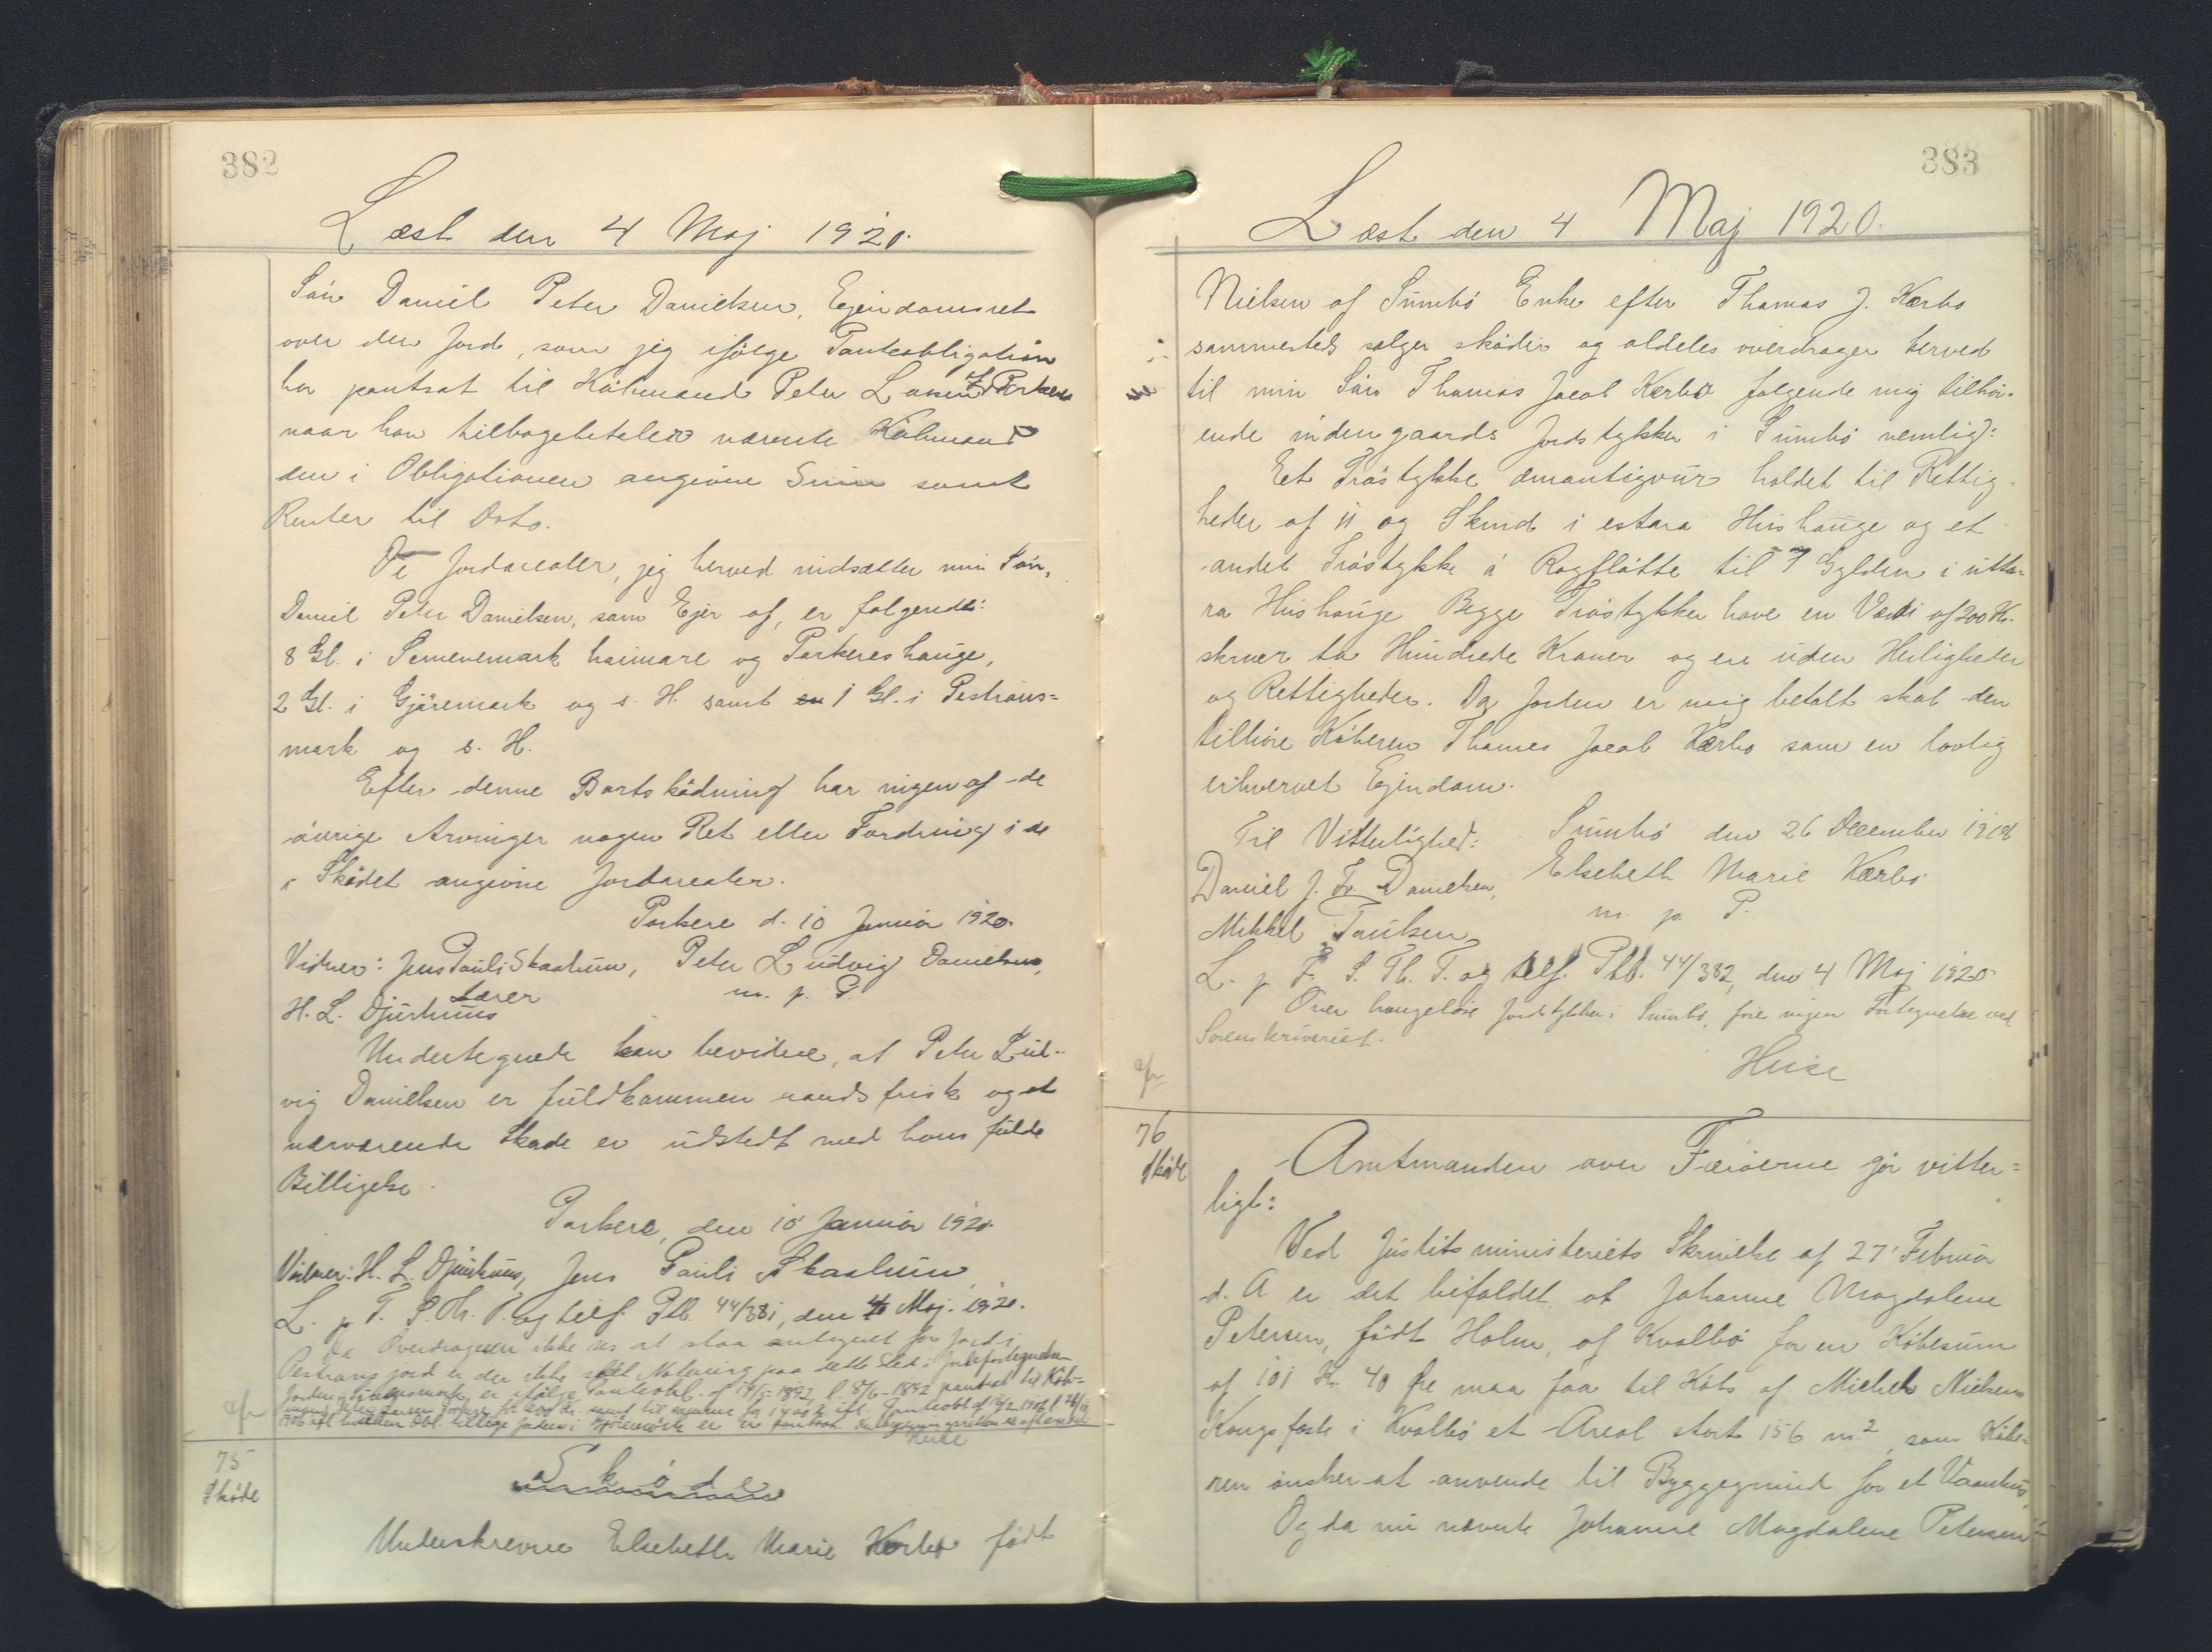 382
Læst den 4 Maj 1920.
Søn Daniel Peter Danielsen, Ejendomsret
over den Jord, som jeg ifølge Panteobligation
har pantsat til Købmand Peter Larsen Porkere
naar han tilbagebetaler nævnte Købmand
den i Obligationen angivne Sum samt
Renter til Dato.
De Jordarealer, jeg herved indsætter min Søn,
Daniel Peter Danielsen, som Ejer af, er følgende:
8 Gl. i Semevemark haimare og Porkereshauge,
2 Gl. i Gjäremark og s. H. samt 1 Gl. i Pestrans=
mark og s. H.
Efter denne Bortskødning har ingen af de
øvrige Arvinger nogen Ret eller Fordring i de
i Skødet angivne Jordarealer.
Porkere d. 10 Januar 1920.
Vidner: Jens Pauli Skaalum, Peter Ludvig Danielsen,
Lærer m. p. P.
H. L. Djurhuus
Undertegnede kan bevidne, at Peter Lud-
vig Danielsen er fuldkommen aandsfrisk og at
nærværende Skøde er udstedt med hans fulde
Billigelse.
Porkere, den 10 Januar 1920.
Vidner: H. L. Djurhuus, Jens Pauli Skaalum
L. p. F. S. Th. T. og tilf. Ptb. 44/381, den 4 Maj 1920.
Da Overdrageren ikke ses at staa antegnet for Jord i
Pestrans jord er der ikke sket Notering paa dette Sted i Jordefortegnelsen
Heise
75
Skøde
Skøde
Underskrevne Elsebeth Marie Kærbo født
383
Læst den 4 Maj 1920.
Nielsen af Sumbø Enke efter Thomas J. Kærbo
sammesteds sælger skøder og aldeles overdrager herved
til min Søn Thomas Jacob Kærbo følgende mig tilhør-
ende indengaards Jordstykker i Sumbø nemlig:
Et Trøstykke omantigvur holdet til Rettig-
heder af 11 og Skind i estara Hushauge og et
andet Trøstykke á Rogfløtte til 7 Gylden i utta=
ra Hushauge Begge Trøstykker have en Værdi af 200 Kr.
skriver to Hundrede Kroner og ere uden Herligheder
og Rettigheder. Da Jorden er mig betalt skal den
tilhøre Køberen Thomas Jacob Kærbo som en lovlig
erhvervet Ejendom.
Til Vitterlighed: Sumbø den 26 December 1918
Daniel J. Fr. Danielsen, Elsebeth Marie Kærbo
Mikkel Poulsen m. p. P.
L. p. F. S. Th. T. og tilf. Ptb. 44/382, den 4 Maj 1920
Over haugeløse Jordstykker i Sumbø, føres ingen Fortegnelse ved
Sorenskriveriet.
Heise
76
Skøde
Amtmanden over Færøerne gør vitter=
ligt:
Ved Justitsministeriets Skrivelse af 27' Februar
d. A er det bifaldet at Johanne Magdalene
Petersen, født Holm, af Kvalbø for en Købesum
af 101 Kr. 40 Øre maa faa til Købs af Michels Nielsens
Kongsfæste i Kvalbø et Areal stort 156 m², som Købe-
ren ønsker at anvende til Byggegrund for et Vaanhus
Og da nu nævnte Johanne Magdalene Petersen